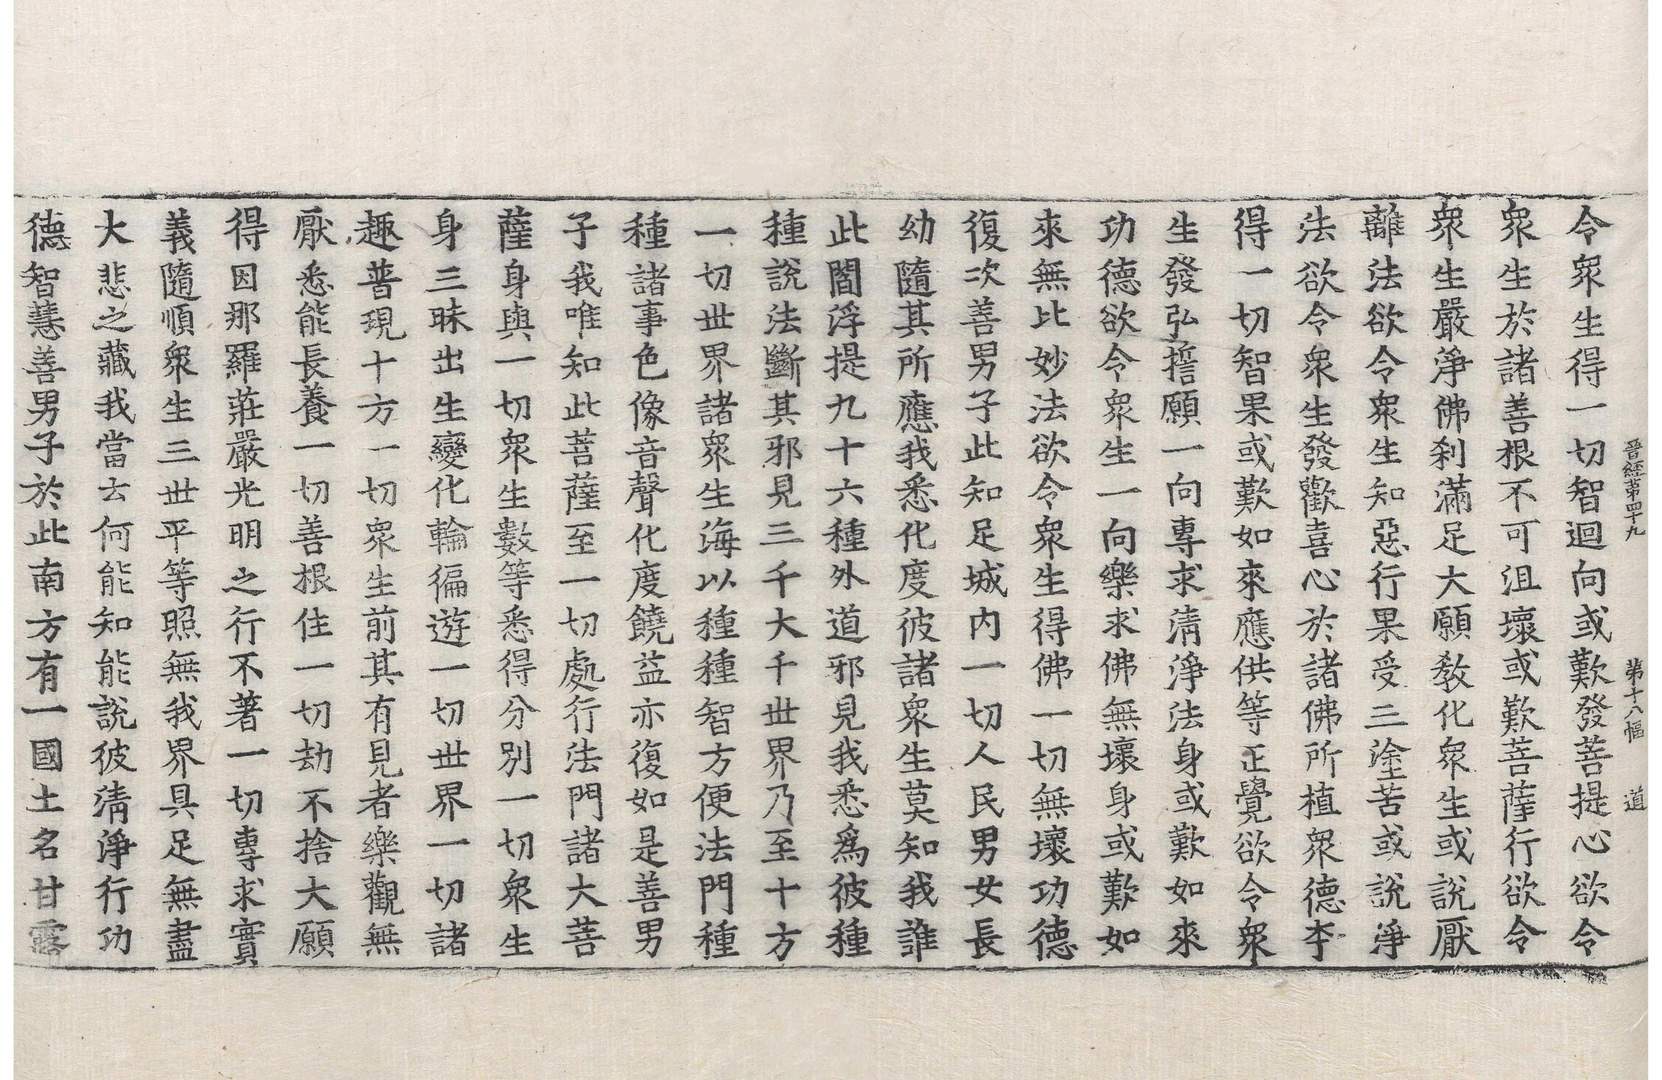 晉經第四十九　第十八幅　道
令衆生得一切智迴向或歎發菩提心欲令
衆生於諸善根不可沮壞或歎菩薩行欲令
衆生嚴淨佛刹滿足大願教化衆生或說厭
離法欲令衆生知惡行果受三塗苦或說淨
法欲令衆生發歡喜心於諸佛所植衆德李
得一切智果或歎如來應供等正覺欲令衆
生發弘誓願一向專求清淨法身或歎如來
功德欲令衆生一向樂求佛無壞身或歎如
來無比妙法欲令衆生得佛一切無壞功德
復次善男子此知足城內一切人民男女長
幼隨其所應我悉化度彼諸衆生莫知我誰
此閻浮提九十六種外道邪見我悉爲彼種
種說法斷其邪見三千大千世界乃至十方
一切世界諸衆生海以種種智方便法門種
種諸事色像音聲化度饒益亦復如是善男
子我唯知此菩薩至一切處行法門諸大菩
薩身與一切衆生數等悉得分別一切衆生
身三昧出生變化輪徧遊一切世界一切諸
趣普現十方一切衆生前其有見者樂觀無
厭悉能長養一切善根住一切劫不捨大願
得因那羅莊嚴光明之行不著一切專求實
義隨順衆生三世平等照無我界具足無盡
大悲之藏我當云何能知能說彼清淨行功
德智慧善男子於此南方有一國土名甘露